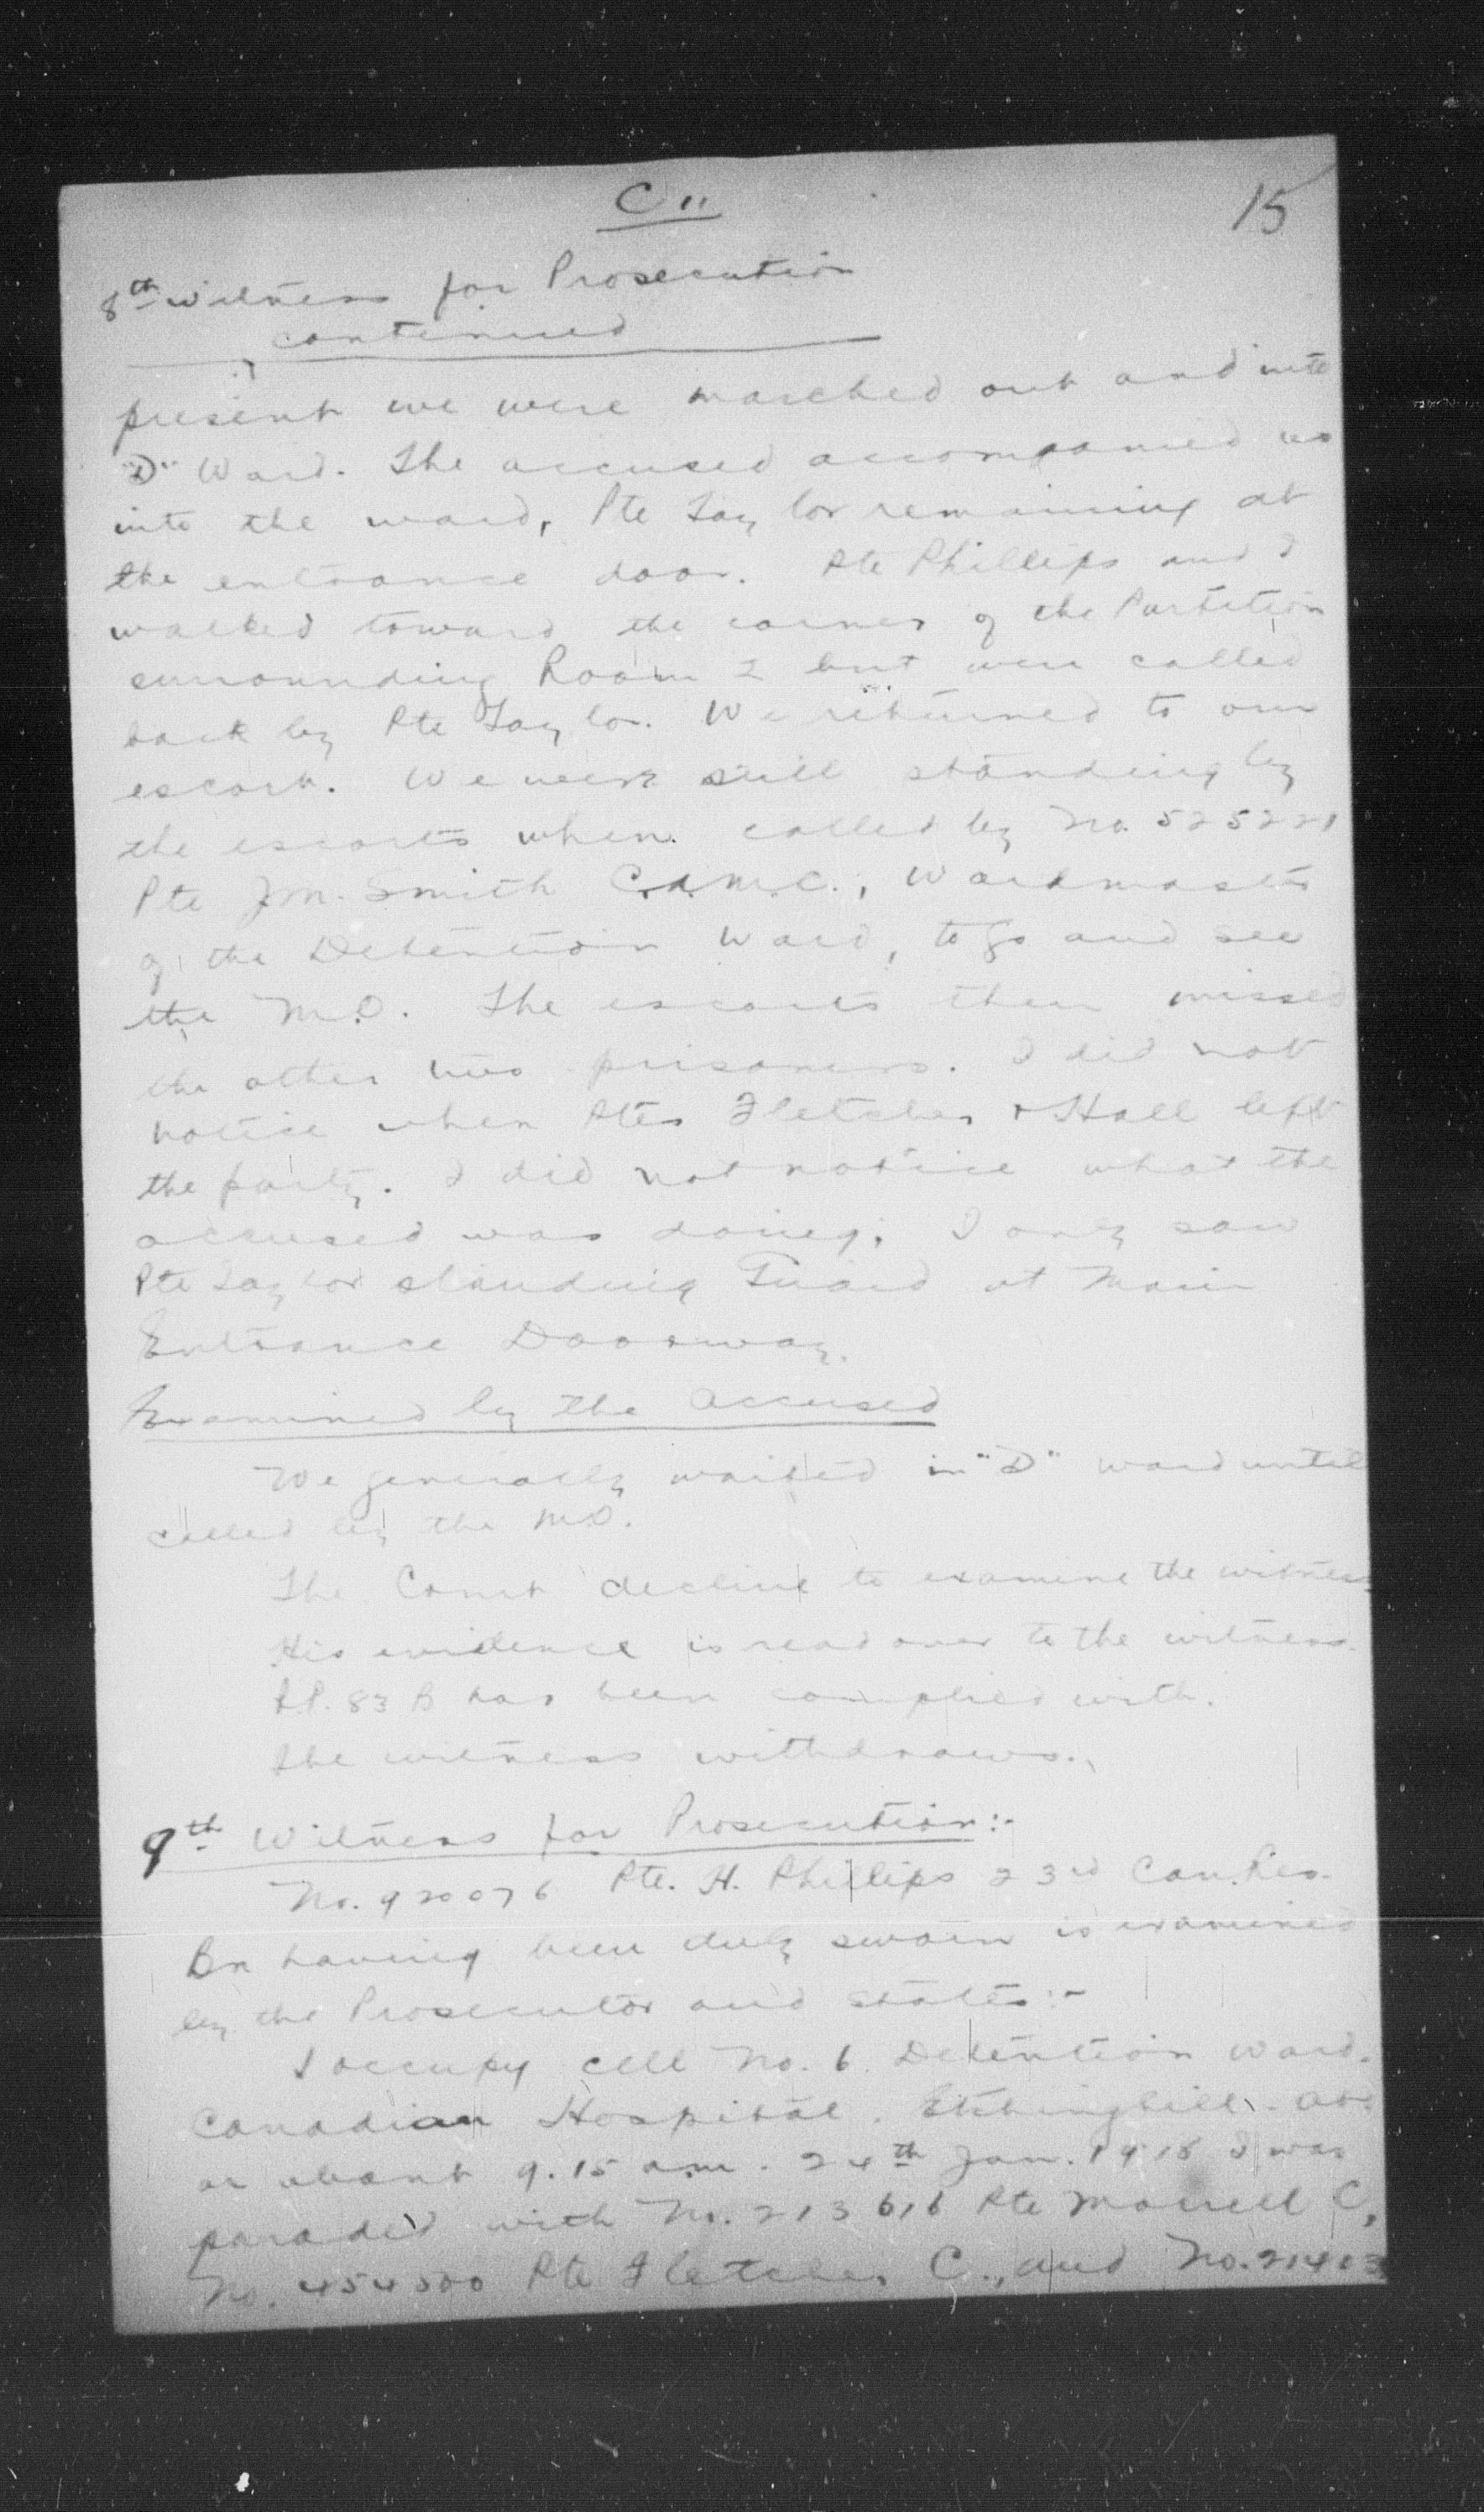 C 11
15
8th Witness for Prosecution
continued
present we were marched out and into
"D" Ward. The accused accompanied us
into the ward, Pte Taylor remaining at
the entrance door. Pte Phillips and I
walked toward the corner of the Partition
surrounding Room 2 but were called
back by Pte Taylor. We returned to our
escort. We were still standing by
the escorts when called by No. 525221
Pte J.M. Smith C.A.M.C., Wardmaster
of the Detention Ward, to go and see
the M.O. The escorts then missed
the other two prisoners. I did not
notice when Ptes Fletcher & Hall left
the party. I did not notice what the
accused was doing; I only saw
Pte Taylor standing Guard at Main
Entrance Doorway.
Examined by the Accused
We generally waited in "D" ward until
called by the M.O.
The Court decline to examine the witness
His evidence is read over to the witness.
R.P. 83 B has been complied with.
The witness withdraws.
9th Witness for Prosecution:-
No. 920076 Pte. H. Phillips 23rd Can. Res.
Bn having been duly sworn is examined
by the Prosecutor and states:-
I occupy cell No. 6 Detention Ward.
Canadian Hospital. Etchinghill. At
or about 9.15 a.m. 24th Jan. 1918 I was
paraded with No. 213616 Pte Morrell C,
No. 454500 Pte Fletcher C., and No. 21403